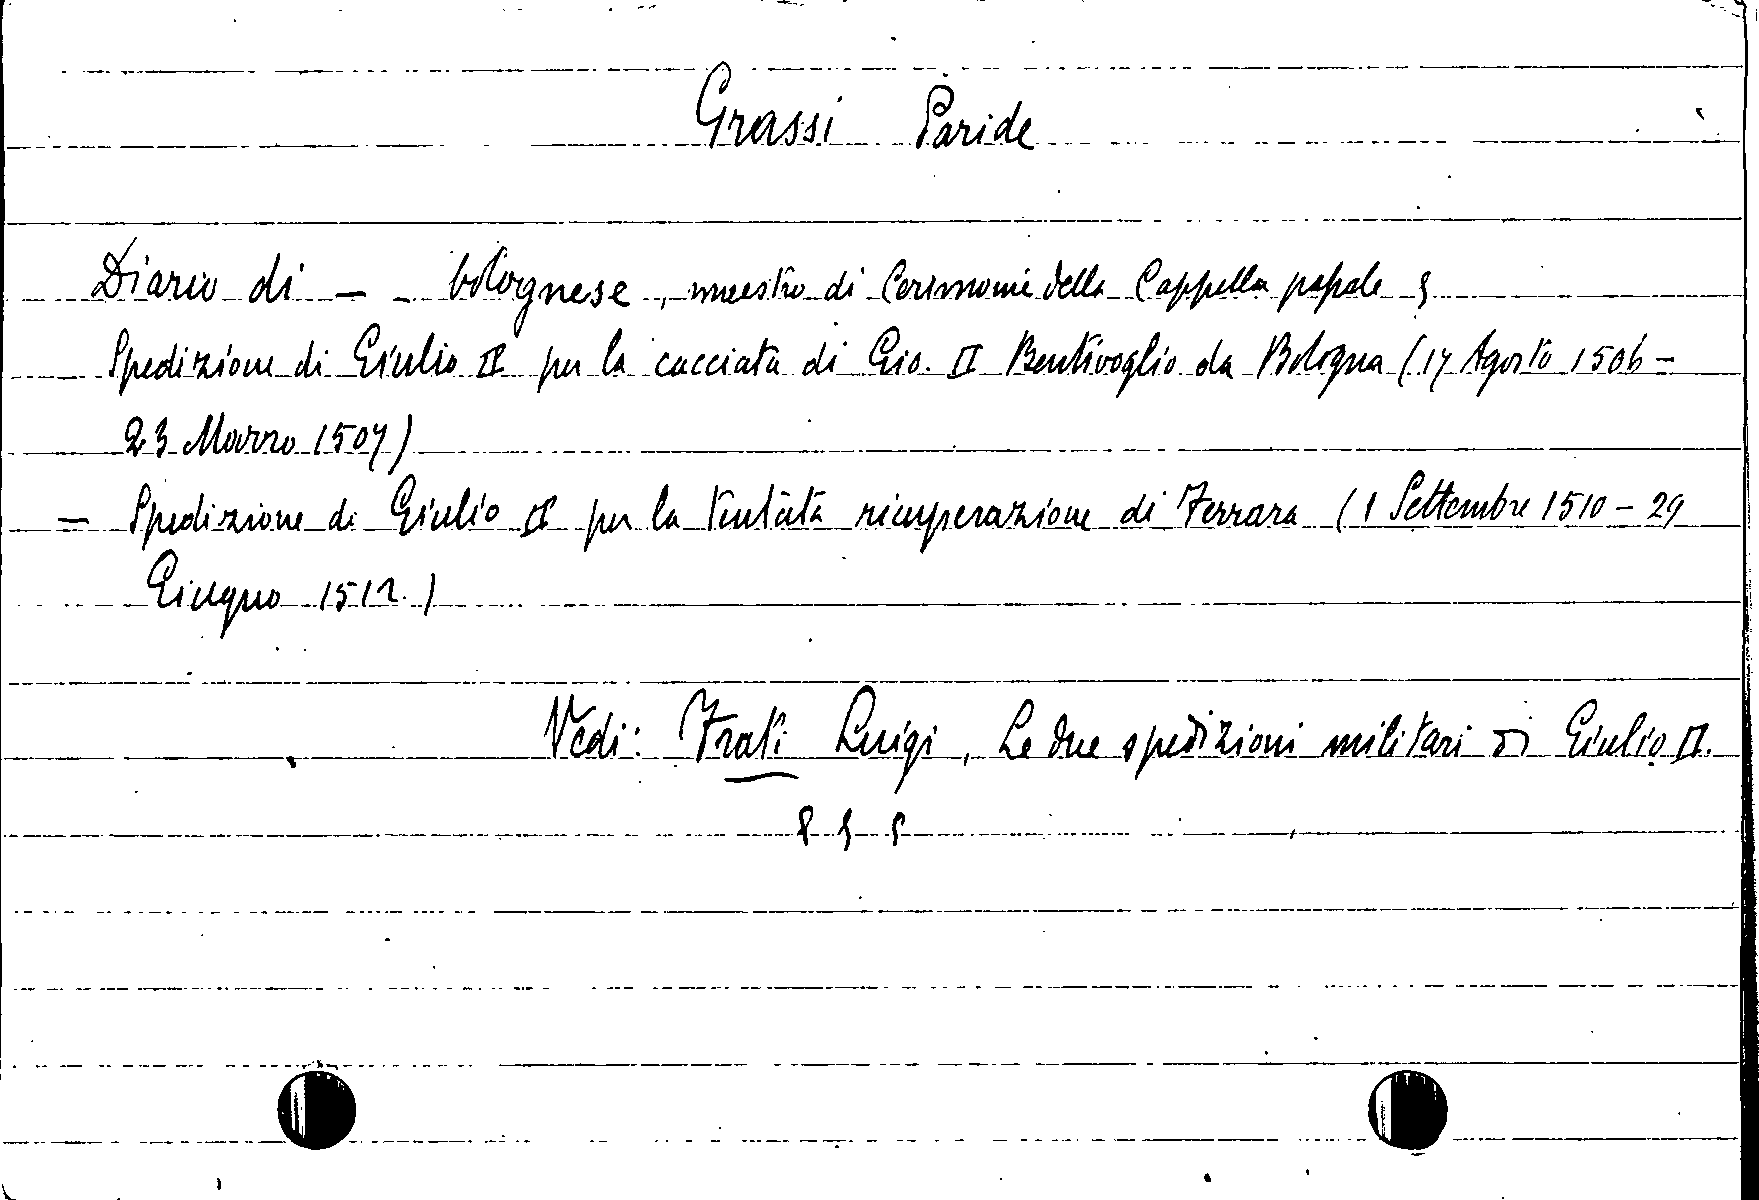 Grassi Paride
Diario di — - bolognese, maestro di Cerimonie della Cappella papale
Spedizione di Giulio II per la cacciata di Gio. II Bentivoglio da Bologna (17 Agosto 1506 -
23 Marzo 1507)
— Spedizione di Giulio II per la tentata ricuperazione di Ferrara (1 Settembre 1510 - 29
Giugno 1512.)
Vedi: Frati Luigi, Le due spedizioni militari di Giulio II.